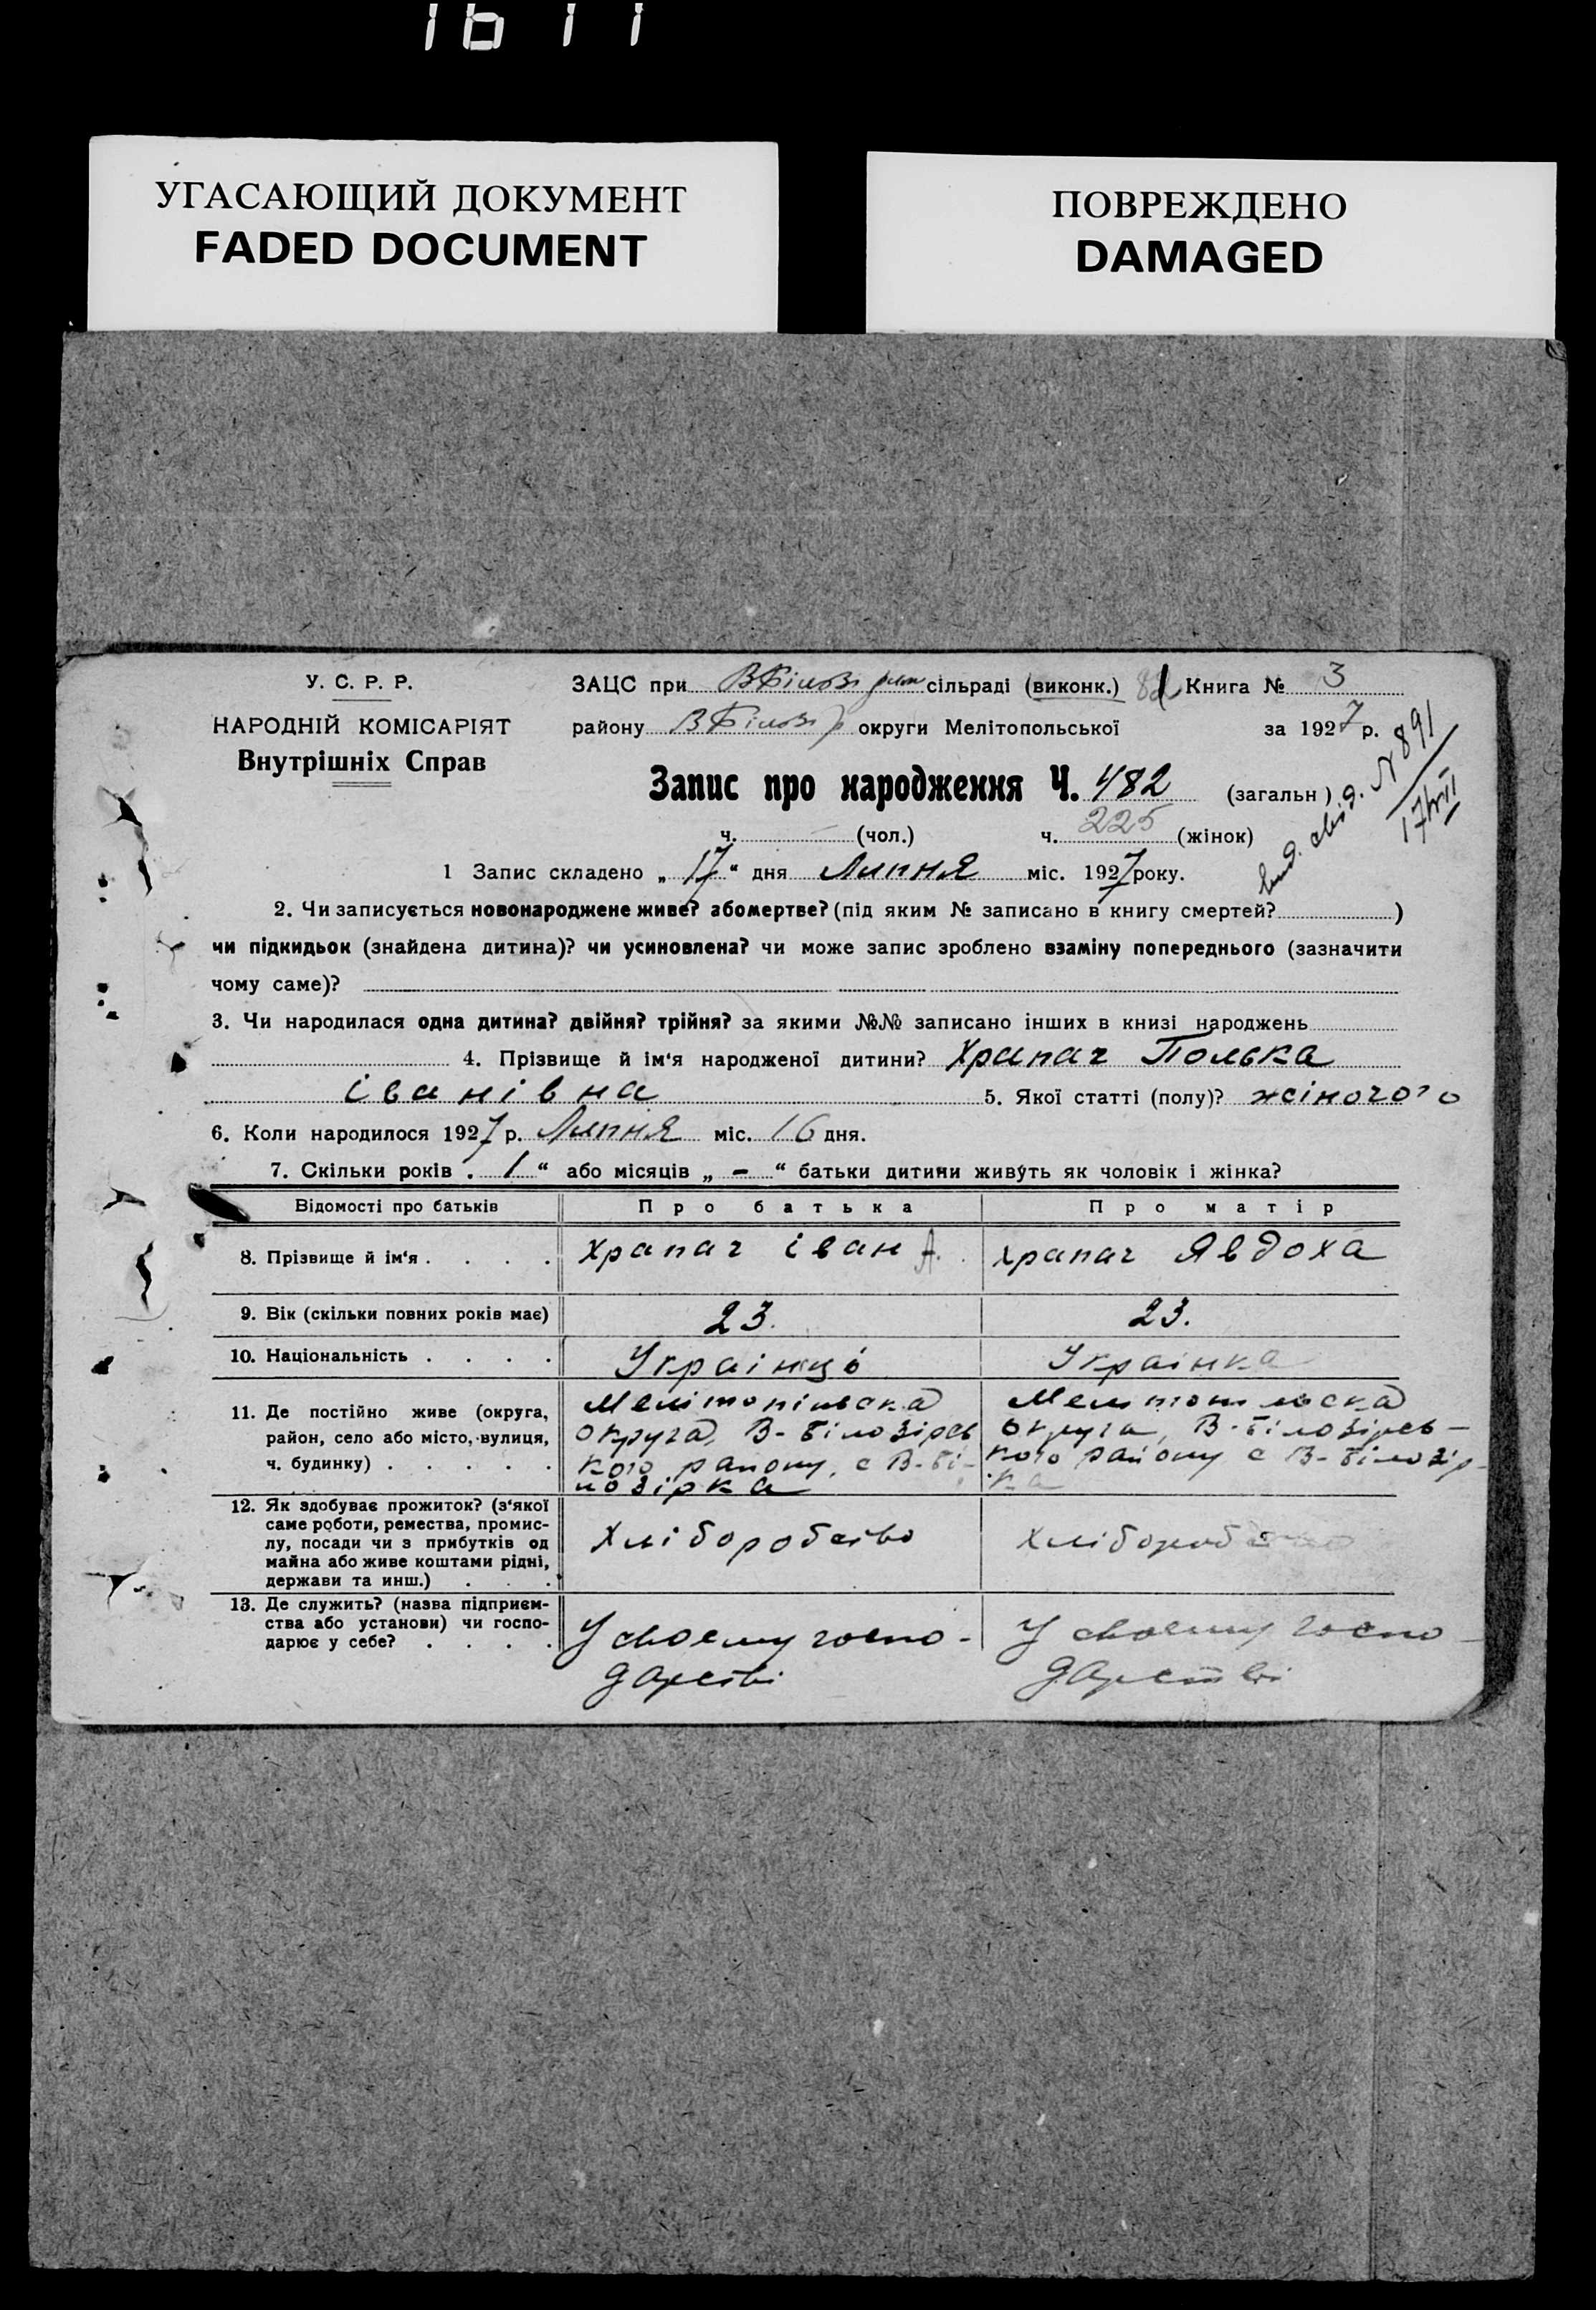 1611
УГАСАЮЩИЙ ДОКУМЕНТ
FADED DOCUMENT
ПОВРЕЖДЕНО
DAMAGED
У. С. Р. Р.
НАРОДНІЙ КОМІСАРІЯТ
Внутрішніх Справ
ЗАЦС при сільраді (виконк.) Книга № 3
району округи Мелітопольської за 1927 р.
Запис про народження Ч. 482 (загальн)
N 891
17/VII
ч. (чол.) ч. 225 (жінок)
1 Запис складено „17“ дня Липня міс. 1927 року.
2. Чи записується новонароджене живе? або мертве? (під яким № записано в книгу смертей? )
чи підкидьок (знайдена дитина)? чи усиновлена? чи може запис зроблено взаміну попереднього (зазначити
чому саме)?
3. Чи народилася одна дитина? двійня? трійня? за якими №№ записано інших в книзі народжень
4. Прізвище й ім‘я народженої дитини? Храпач Полька
іванівна 5. Якої статті (полу)? жіночого
6. Коли народилося 1927 р. Липня міс. 16 дня.
7. Скільки років „1“ або місяців „-“ батьки дитини живуть як чоловік і жінка?
Відомості про батьків Про батька Про матір
8. Прізвище й ім‘я . . . . Храпач іван А. храпач Явдоха
9. Вік (скільки повних років має) 23. 23.
10. Національність . . . . Украінць Украінка
11. Де постійно живе (округа,
район, село або місто, вулиця,
ч. будинку) . . . . .
Мелітопільска
округа, В-Білозірсь
кого району, с В-Бі-
лозірка
Мелітопільска
округа, В-Білозірсь-
кого району с В-Білозір-
ка
12. Як здобуває прожиток? (з‘якої
саме роботи, ремества, промис-
лу, посади чи з прибутків од
майна або живе коштами рідні,
держави та инш.) . . .
Хліборобство
Хліборобство
13. Де служить? (назва підприєм-
ства або установи) чи госпо-
дарює у себе? . . . .
У своєму госпо-
дарстві
У своєму госпо-
дарстві